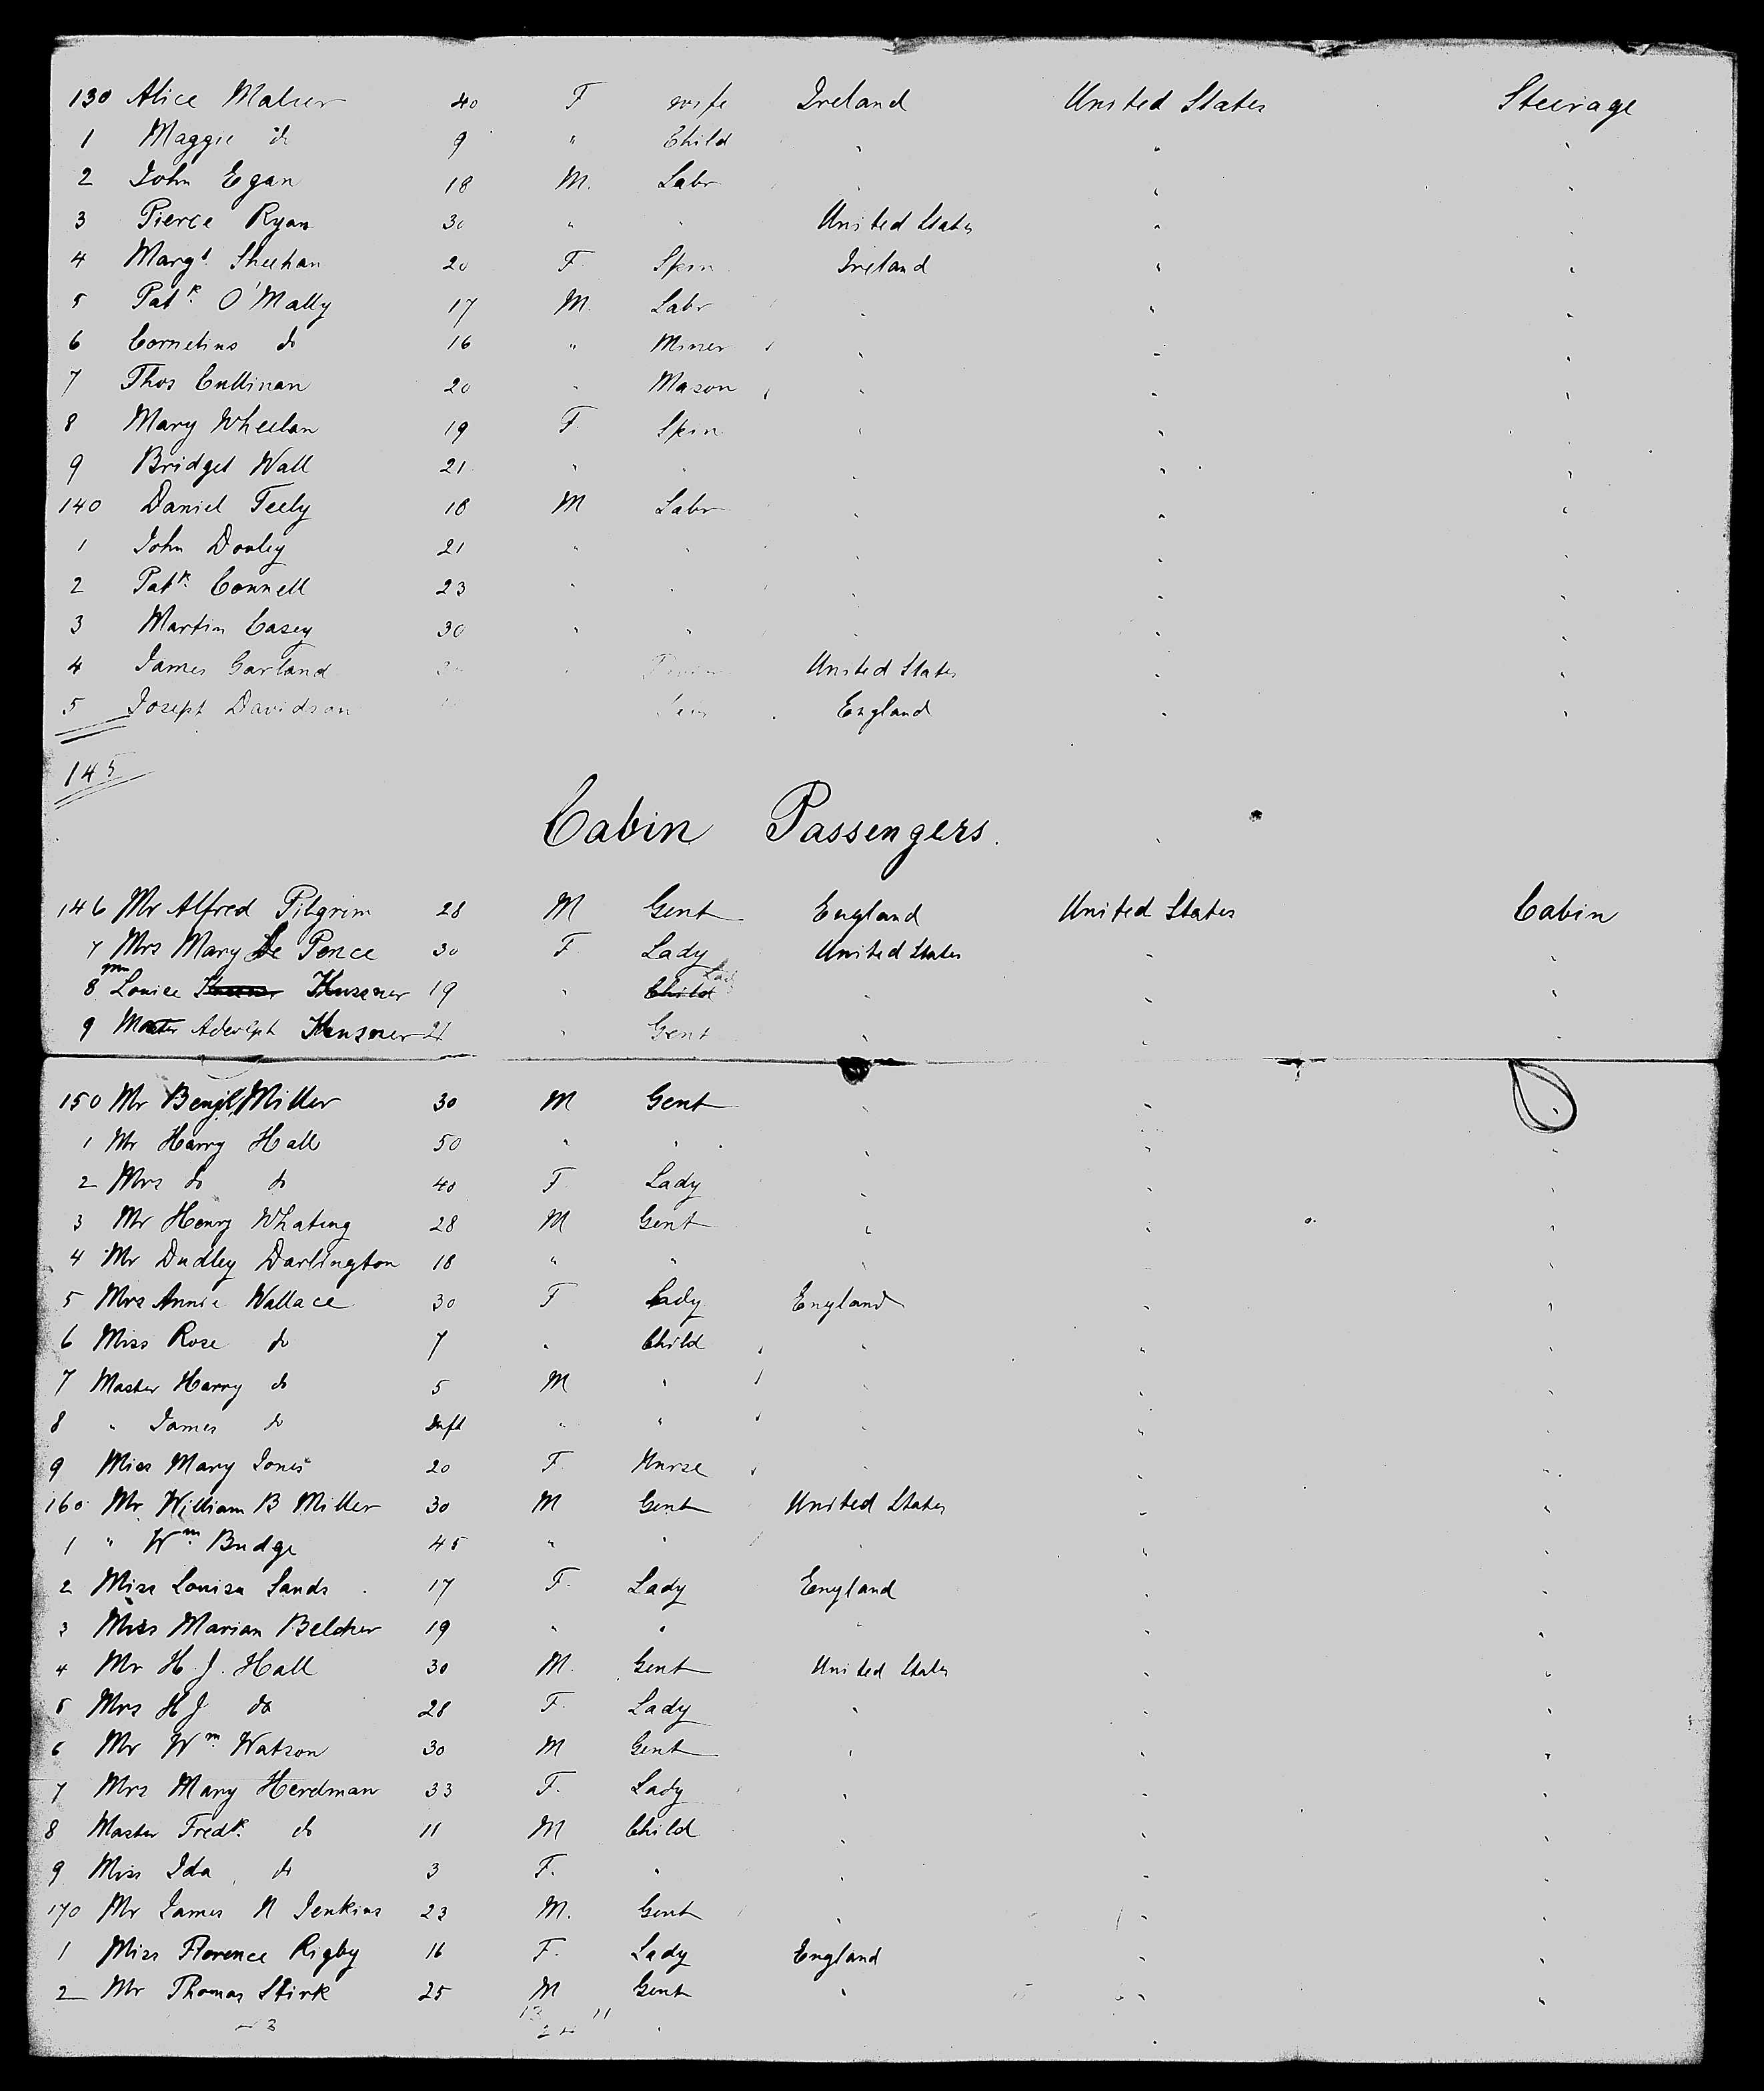 130 Alice Maher 40 F wife Ireland United States Steerage
1 Maggie do 9 " Child " " "
2 John Egan 18 M. Labr " " "
3 Pierce Ryan 30 " " United States " "
4 Margt. Sheehan 20 F Spin Ireland " "
5 Patk. O'Mally 17 M. Labr " " "
6 Cornelius do 16 " Miner " " "
7 Thos Cullinan 20 " Mason " " "
8 Mary Wheelan 19 F Spin " " "
9 Bridget Wall 21 " " " " "
140 Daniel Feely 18 M Labr " " "
1 John Dooley 21 " " " " "
2 Patk. Connell 23 " " " " "
3 Martin Casey 30 " " " " "
4 James Garland " United States " "
5 Joseph Davidson England " "
145
Cabin Passengers.
146 Mr Alfred Pilgrim 28 M Gent England United States Cabin
7 Mrs Mary De Pence 30 F Lady United States " "
8 Louise Kussner 19 " Child Lady " " "
9 Master Adolph Kussner 21 " Gent " " "
150 Mr Benj Miller 30 M Gent " " "
1 Mr Harry Hall 50 " " " " "
2 Mrs do do 40 F Lady " " "
3 Mr Henry Whating 28 M Gent " " "
4 Mr Dudley Darlington 18 " " " " "
5 Mrs Annie Wallace 30 F Lady England " "
6 Miss Rose do 7 " Child " " "
7 Master Harry do 5 M " " " "
8 " James do Inft " " " " "
9 Miss Mary Jones 20 F Nurse " " "
160 Mr William B Miller 30 M Gent United States " "
1 " Wm. Budge 45 " " " " "
2 Miss Louisa Sands 17 F. Lady England " "
3 Miss Marian Belcher 19 " " " " "
4 Mr H. J. Hall 30 M. Gent United States " "
5 Mrs H J do 28 F. Lady " " "
6 Mr Wm. Watson 30 M Gent " " "
7 Mrs Mary Herdman 33 F. Lady " " "
8 Master Fredk. do 11 M Child " " "
9 Miss Ida do 3 F. " " " "
170 Mr James N Jenkins 23 M. Gent " " "
1 Miss Florence Rigby 16 F. Lady England " "
2 Mr Thomas Stirk 25 M Gent " " "
13 11